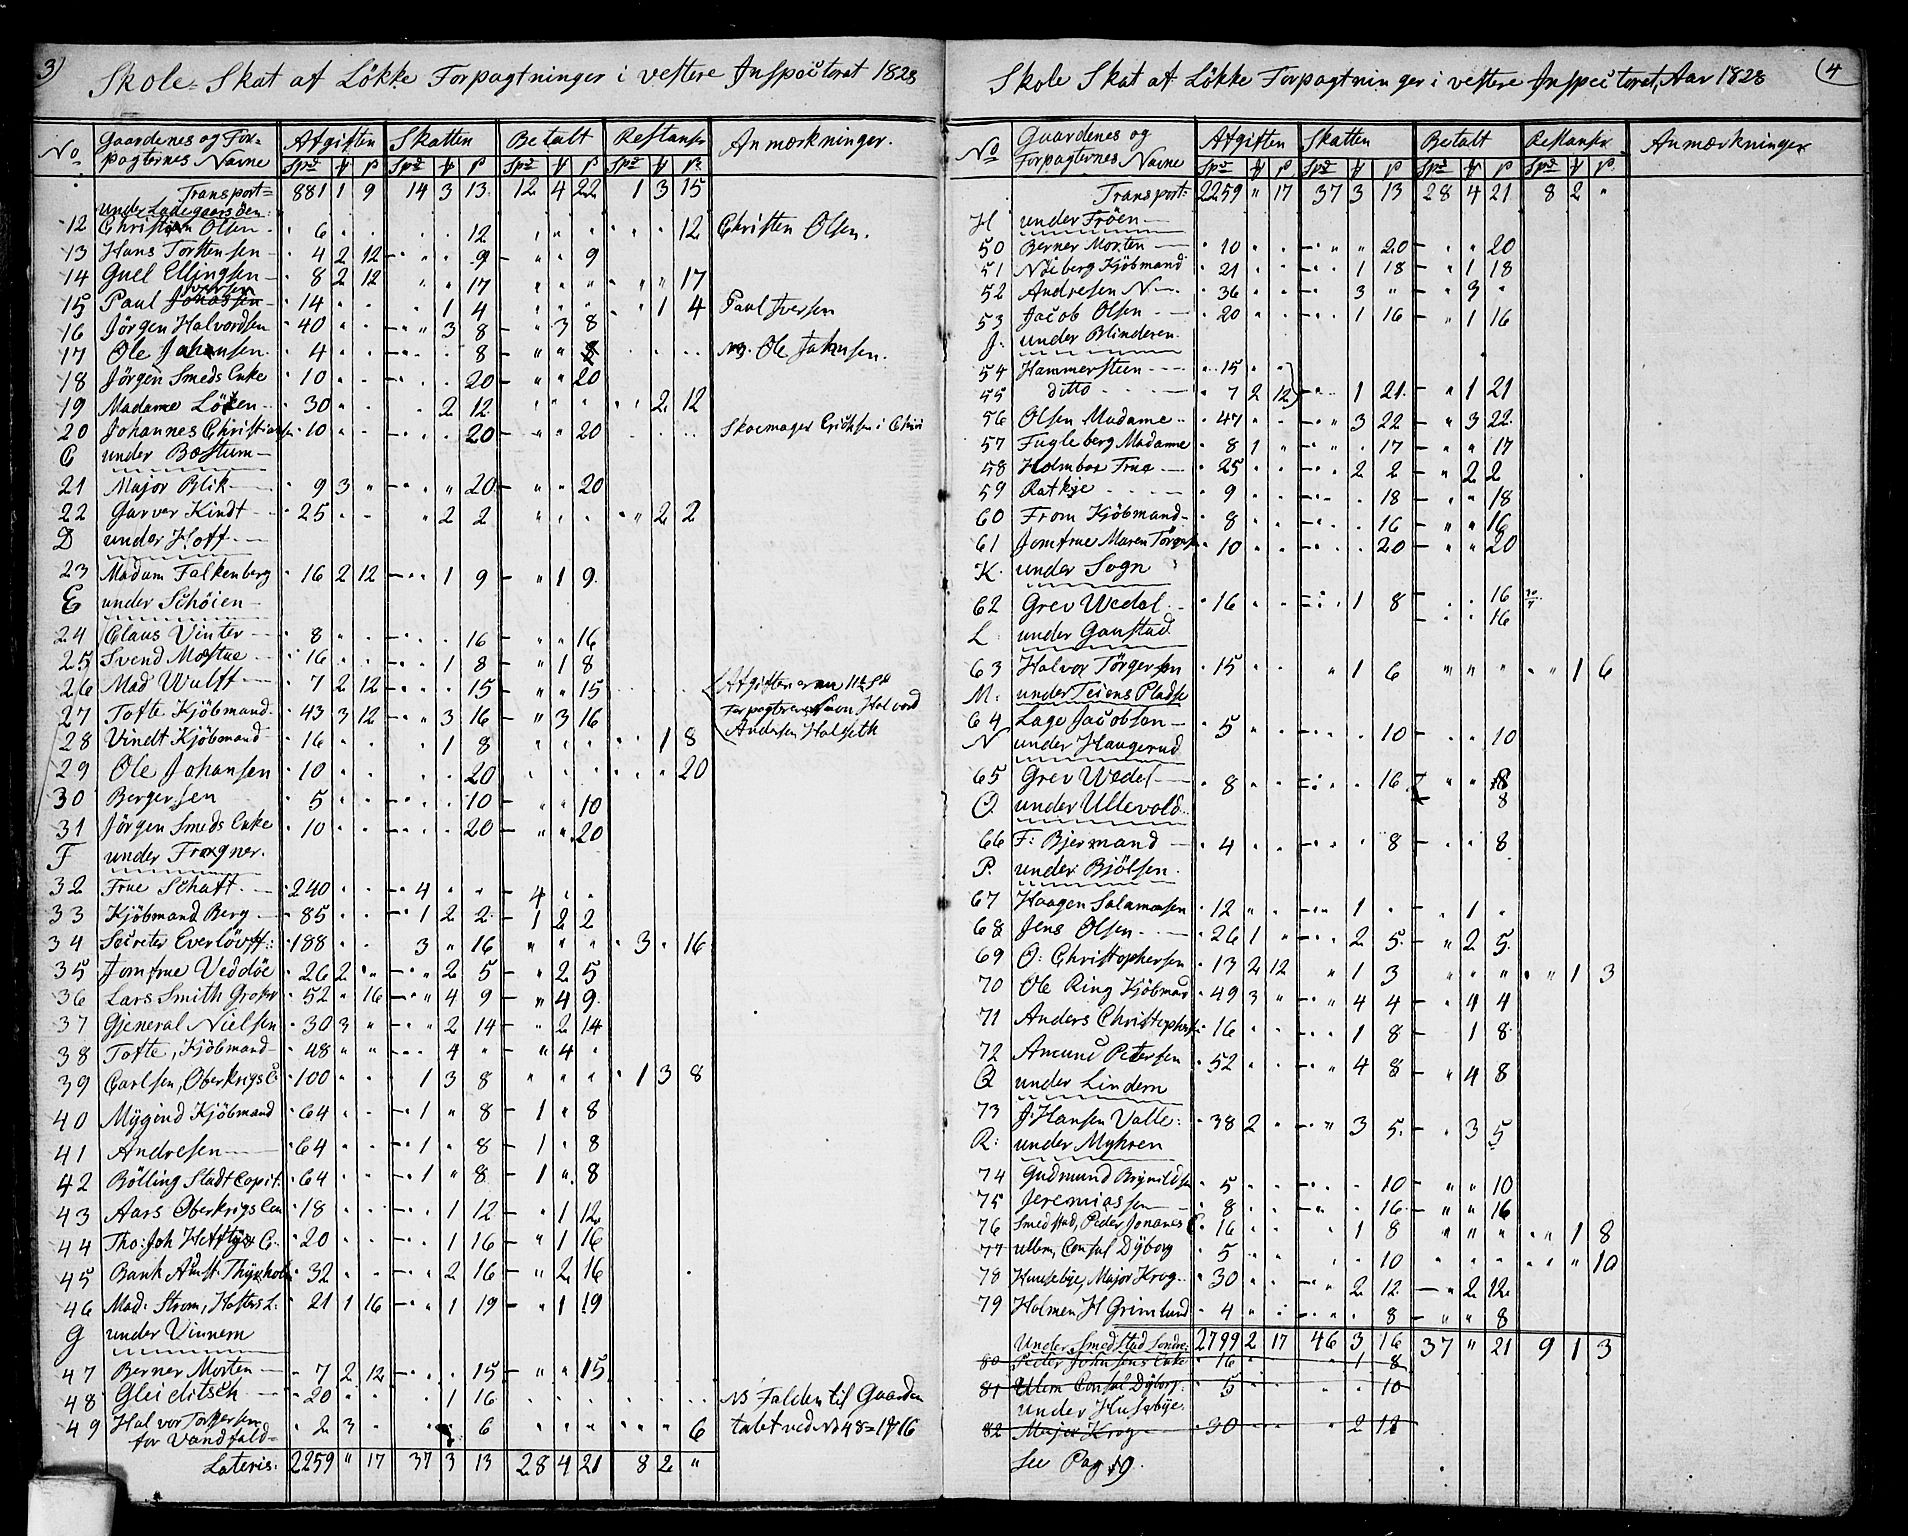 3) Skole-Skat af Løkke Forpagtninger i vestere Inspectorat 1828
No | Gaardenes og Forpagternes Navne | Afgiften Spd ß | Skatten Spd ß | Betalt Spd ß | Restanser Spd ß | Anmærkninger.
Transport= 881 1 9 14 3 13 12 4 22 1 3 15
under Ladegaarsöen:
12 Christian Olsen - 6 12 12 Christen Olsen.
13 Hans Torstensen - 4 2 12 9 9
14 Guel Ellingsen - 8 2 12 17 17
15 Paul Jonassen Iversen - 14 1 4 1 4 Paul Iversen
16 Jörgen Halvordsen 40 3 8 3 8
17 Ole Johansen. 4 8 8 NB. Ole Johnsen.
18 Jörgen Smeds Enke 10 20 20
19 Madame Löken 30 2 12 2 12
20 Johannes Christiansen 10 20 20 Skoemager Ericksen i Christi
C under Bæstum
21 Major Blik 9 3 20 20
22 Garver Kindt 25 2 2 2 2
D under Hoff
23 Madam Falkenberg 16 2 12 1 9 1 9
E under Schöien
24 Claus Vinter 8 16 16
25 Svend Mostue 16 1 8 1 8
26 Mad Wulff 7 2 12 15 15 Afgiften er nu 11
27 Tofte Kjöbmand 43 3 12 3 16 3 16 Forpagterens Navn Halvord
28 Vindt Kjöbmand 16 1 8 1 8 Andersen Halseth
29 Ole Johansen 10 20 20
30 Bergersen 5 10 10
31 Jörgen Smeds Enke 10 20 20
F under Frogner.
32 Frue Schaft 240 4 4
33 Kjöbmand Berg 85 1 2 2 1 2 2
34 Secreter Everlövff: 188 3 " 16 3 16
35 Jomfrue Veddöe 26 2 2 5 2 5
36 Lars Smith Groser 52 " 16 4 9 4 9
37 Gjeneral Nielsen 30 3 " 2 14 2 14
38 Tofte, Kjöbmand 48 " " 4 " 4
39 Carlsen, Oberkrigs C. 100 1 3 8 1 3 8
40 Mÿgind Kjöbmand 64 1 " 8 1 " 8
41 Andresen 64 1 " 8 1 8
42 Bölling Stadt Copit. 64 1 " 8 1 " 8
43 Aars Oberkrigs Com 18 1 12 1 12
44 Tho: Joh Heftÿe C. 20 1 16 1 16
45 Bank Amst. Thÿgholm 32 2 16 2 16
46 Mad: Strom, Hafters L. 21 1 16 1 19 1 19
G under Vinnem
47 Berner Morten 7 2 12 15 15
48 Gleiditsch 20 1 16 NB Falden til Gaarden
49 Halvor Torgersen 2 3 6 6 tabt ved No 48 = 1ß16
for Vandfald=
Lateris: 2259 " 17 37 3 13 28 4 21 8 2 "
Skole Skat af Løkke Forpagtninger i vestere Inspectorat, Aar 1828 4
No | Gaardenes og Forpagternes Navne | Afgiften Spd ß | Skatten Spd ß | Betalt Spd ß | Restanser Spd ß | Anmærkninger
Transport: 2259 " 17 37 3 13 28 4 21 8 2 "
H under Fröen
50 Berner Morten 10 20 20
51 Nöiberg Kjöbmand 21 1 18 1 18
52 Andresen N 36 3 " 3 "
53 Jacob Olsen 20 1 16 1 16
J. under Blinderen.
54 Hammersteen 15
55 ditto 7 2 12 1 21 1 21
56 Olsen Madame 47 3 22 3 22
57 Fugleberg Madamme 8 1 17 17
58 Holmboe Frue 25 2 2 2 2
59 Ratkje 9 18 18
60 From Kjöbmand 8 16 16
61 Jomfrue Maren 10 20 20
K. under Sogn
62 Grev Wedel 16 1 8 16
16
L. under Gaustad
63 Halvor Törgersen 15 1 6 1 6
M. under Teiens Pladse
64 Lage Jacobsen 5 10 10
N under Haugerud
65 Grev Wedel 8 16 8
8
O. under Ullevold
66 F: Bjermand 4 8 8
P. under Bjölsen.
67 Haagen Salamonsen 12 1 1
68 Jens Olsen 26 1 2 5 2 5
69 O: Christophersen 13 2 12 1 3 1 3
70 Ole Ring Kjöbmand 49 3 4 4 4 4
71 Anders Christophersen 16 1 8 1 8
72 Amund Petersen 52 4 8 4 8
Q under Lindern
73 J. Hansen Valle: 38 2 3 5 3 5
R: under Myhren
74 Gudmund Brynildsen 5 10 10
75 Jeremiassen 8 16 16
76 Smedstad, Peder Jonanes E 16 1 8 1 8
77 Ullern, Consul Dÿborg 5 10 10
78 Huusebÿe, Major Krog 30 2 12 2 12
79 Holmen H Grimlund 4 8 8
Under Smedstad Söndre 2799 2 17 46 3 16 37 " 21 9 1 3
80 Peder Johnsens Enke 16 1 8
81 Ulern Consul Dÿborg. 5 10
under Husebÿe
82 Major Krog 30 2 12
See Pag 19.